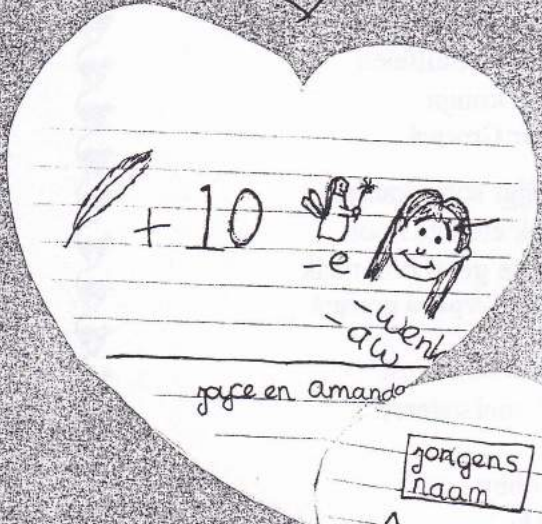 + 10
-e
-wenk
-aw
joyce en amanda
jorigens
naam